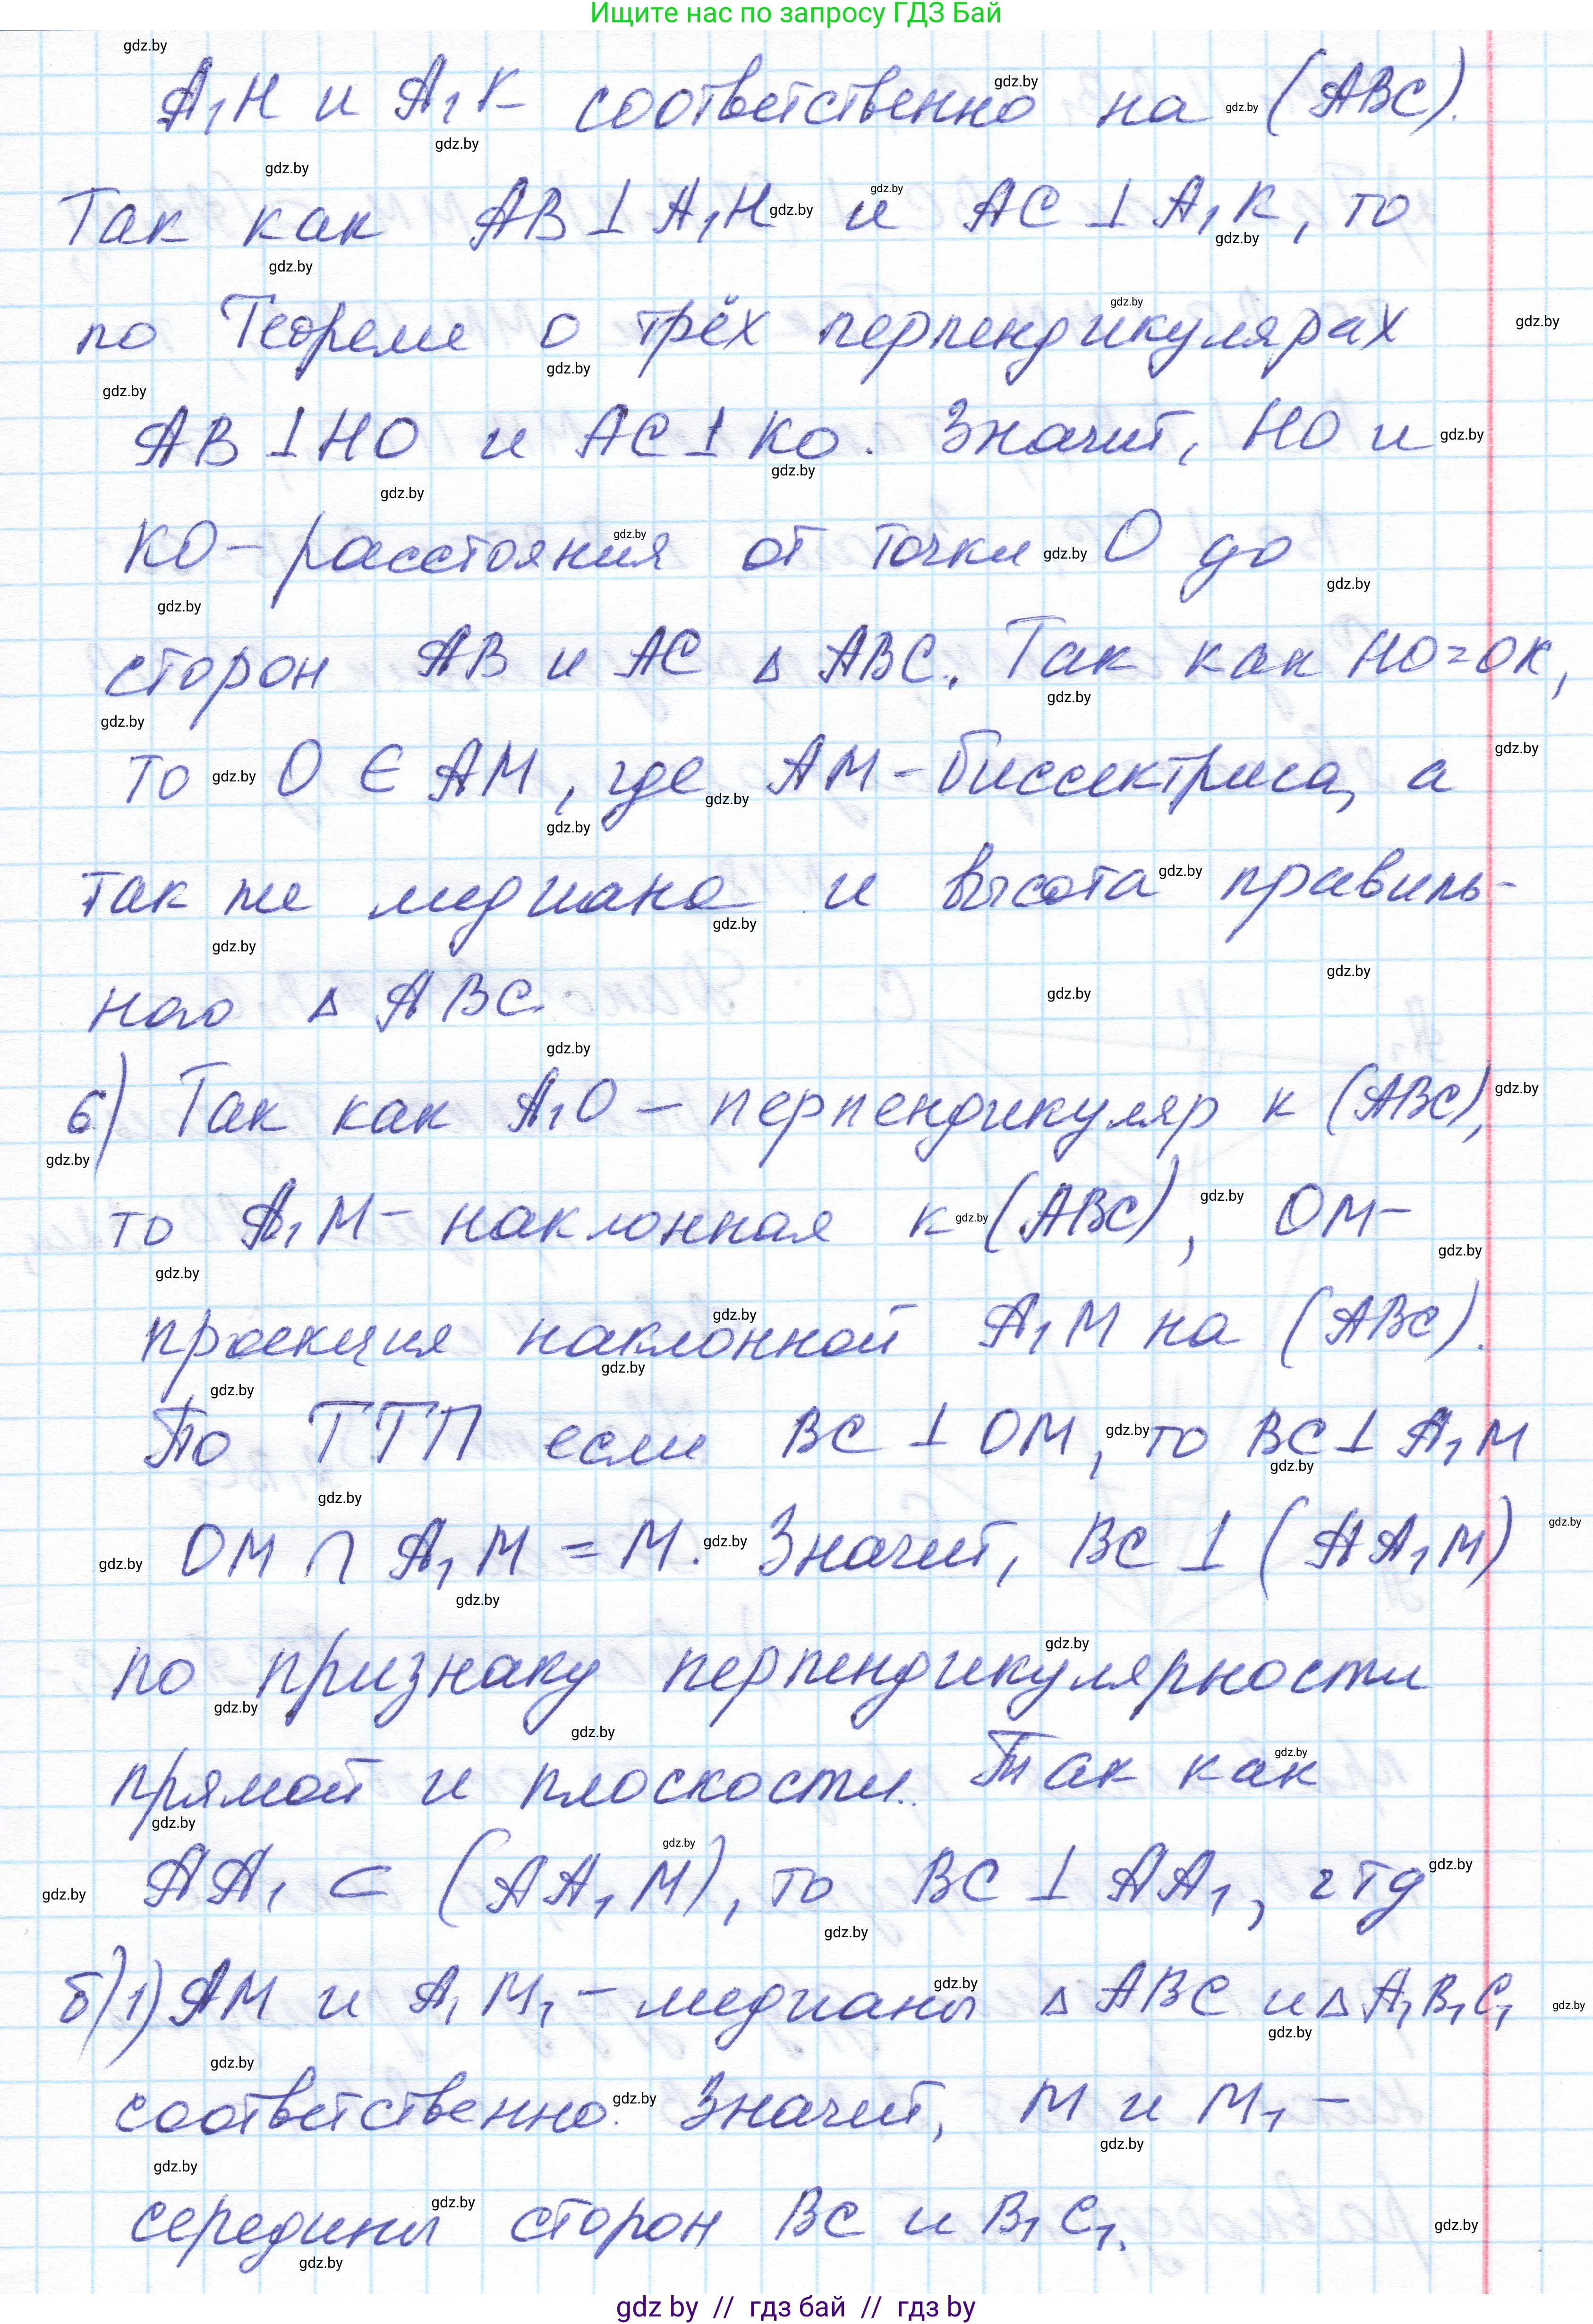 Ищите нас по запросу ГДЗ Бай
A₁H и A₁K соответственно на (ABC).
Так как AB ⊥ A₁H и AC ⊥ A₁K, то
по Теореме о трёх перпендикулярах
AB ⊥ HO и AC ⊥ KO. Значит, HO и
KO – расстояния от точки O до
сторон AB и AC △ ABC. Так как HO = OK,
то O ∈ AM, где AM – биссектриса, а
так же медиана и высота правиль-
ного △ ABC
6) Так как A₁O – перпендикуляр к (ABC),
то A₁M – наклонная к (ABC), OM –
проекция наклонной A₁M на (ABC).
По ТТП если BC ⊥ OM, то BC ⊥ A₁M
OM ∩ A₁M = M. Значит, BC ⊥ (AA₁M)
по признаку перпендикулярности
прямой и плоскости. Так как
AA₁ ⊂ (AA₁M), то BC ⊥ AA₁, чтд
б) 1) AM и A₁M₁ – медианы △ ABC и △ A₁B₁C₁
соответственно. Значит, M и M₁ –
середины сторон BC и B₁C₁.
gdz by // гдз бай // гдз by